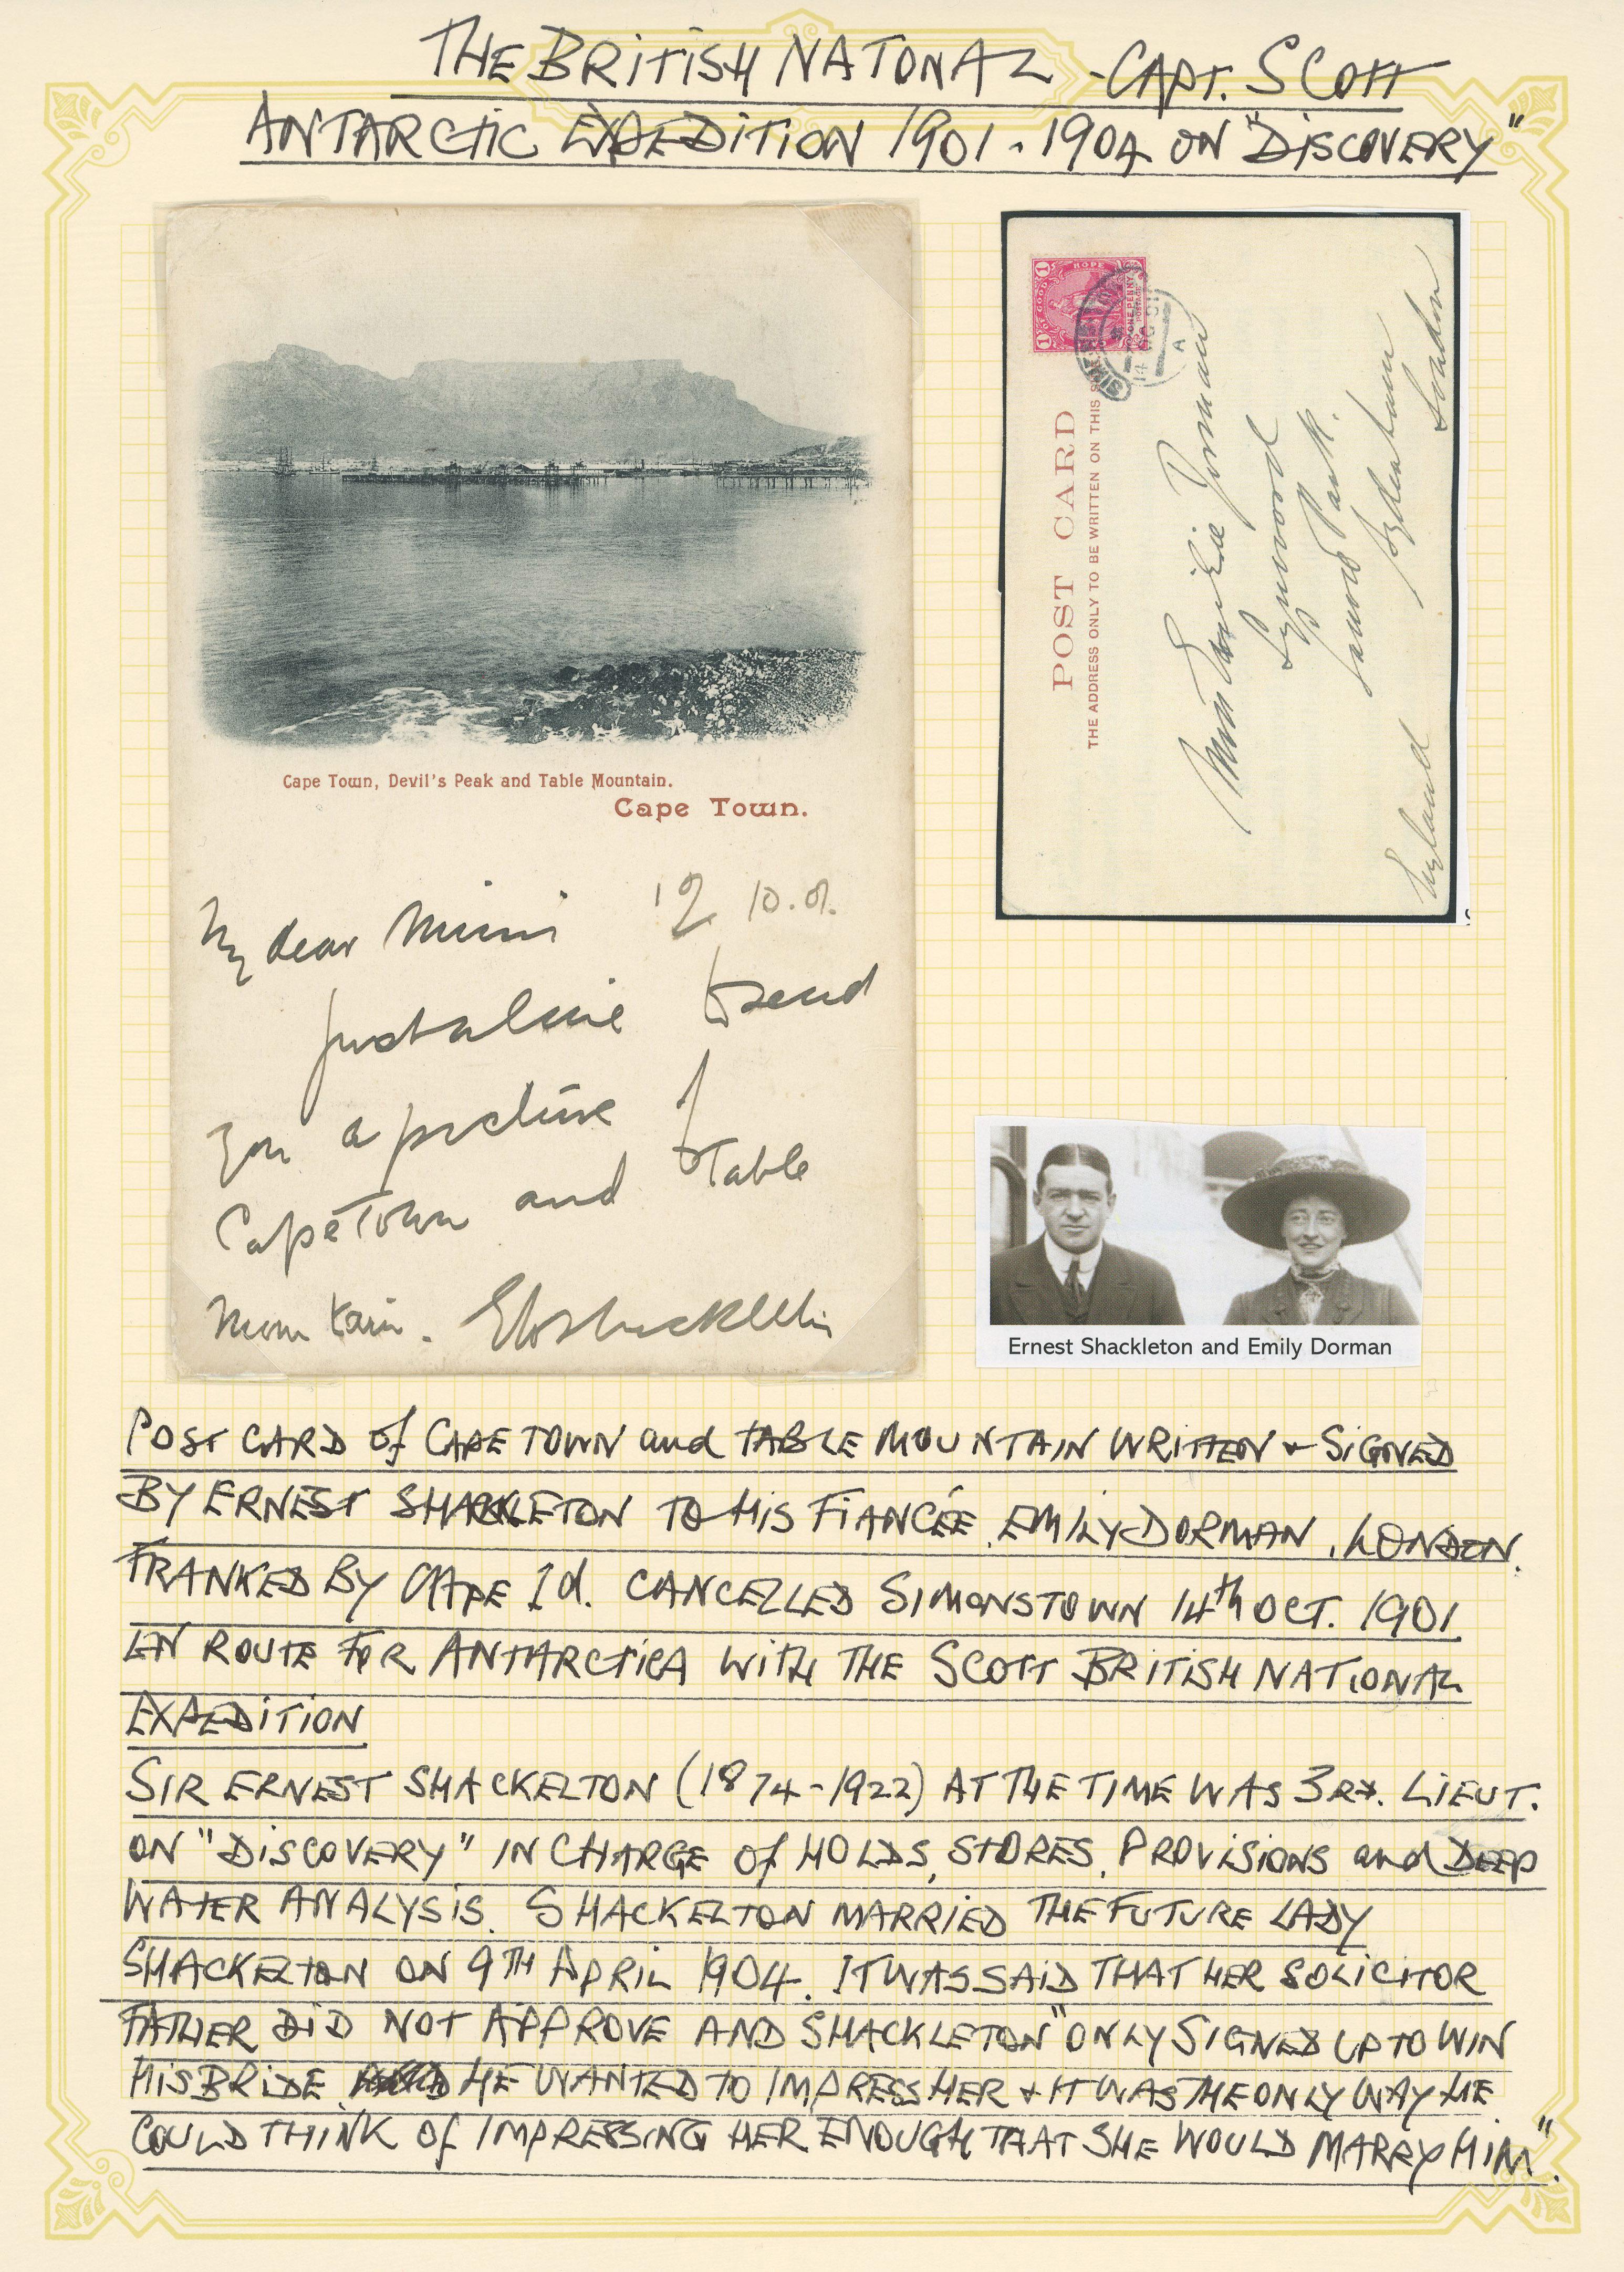 THE BRITISH NATONAL - CAPT. SCOTT
ANTARCTIC EXPEDITION 1901 - 1904 ON "DISCOVERY"
Cape Town, Devil's Peak and Table Mountain.
Cape Town.
My dear Mimi 12 10.01.
Just a line to send
you a picture of
CapeTown and Table
Mountain. EHShackleton
OF GOOD HOPE
ONE PENNY
POSTAGE
1
1
14
OC 01
A
POST CARD
THE ADDRESS ONLY TO BE WRITTEN ON THIS
Miss Emilie Dorman
Lynwood
Park.
Sydenham
London
England
Ernest Shackleton and Emily Dorman
POST CARD of CAPE TOWN and TABLE MOUNTAIN WRITTEN + SIGNED
BY ERNEST SHACKLETON TO HIS FIANCÉE, EMILY DORMAN, LONDON.
FRANKED BY CAPE 1d. CANCELLED SIMONSTOWN 14th OCT. 1901
EN ROUTE FOR ANTARCTICA WITH THE SCOTT BRITISH NATIONAL
EXPEDITION
SIR ERNEST SHACKELTON (1874-1922) AT THE TIME WAS 3RD. LIEUT.
ON "DISCOVERY" IN CHARGE of HOLDS, STORES, PROVISIONS and DEEP
WATER ANALYSIS. SHACKELTON MARRIED THE FUTURE LADY
SHACKELTON ON 9TH APRIL 1904. IT WAS SAID THAT HER SOLICITOR
FATHER DID NOT APPROVE AND SHACKLETON "ONLY SIGNED UP TO WIN
HIS BRIDE HE WANTED TO IMPRESS HER + IT WAS THE ONLY WAY HE
COULD THINK OF IMPRESSING HER ENOUGH THAT SHE WOULD MARRY HIM".